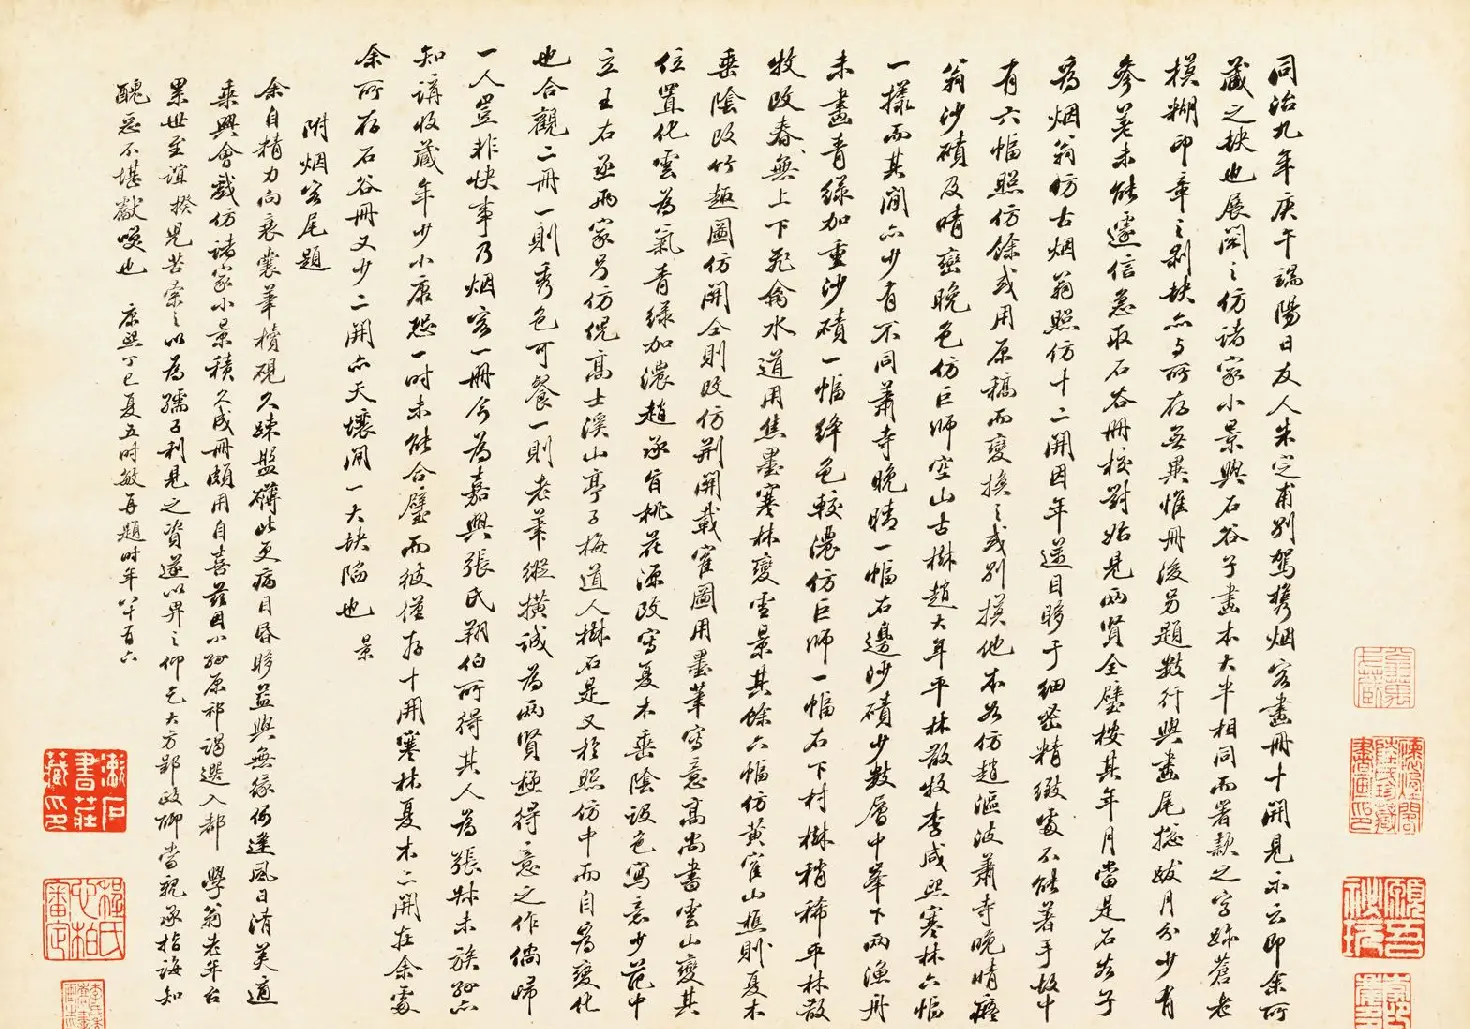 同治九年庚午端陽日友人朱定甫別駕携烟客畫冊十開見示云即余所
藏之缺也展閱之仿諸家小景與石谷子畫本大半相同而署款之字蹟蒼老
模糊印章之剥蝕亦与所存無異惟冊後另題數行與畫尾揔跋月分少有
參差未能遽信急取石谷冊校對始見兩賢全璧按其年月當是石谷子
為烟翁昉古烟翁照仿十二開因年逆目眵于細密精緻處不能著手故中
有六幅照仿餘或用原稿而變換之或別摸他本如仿趙漚波蕭寺晚晴癡
翁沙磧及晴巒晚色仿巨師空山古樹趙大年平林散牧李咸熙寒林六幅
一樣而其間亦少有不同蕭寺晚晴一幅右邊沙磧少數層中峯下兩漁舟
未畫青綠加重沙磧一幅絳色較濃仿巨師一幅右下村樹稍稀平林散
牧改春無上下飛禽水道用焦墨寒林變雪景其餘六幅仿黃寉山樵則夏木
垂陰改竹趣圖仿關仝則改仿荆關載寉圖用墨筆寫意高尚書雲山變其
位置化雲為氣青綠加濃趙承旨桃花源改寫夏木垂陰設色寫意少范中
立王右丞兩家另仿倪高士溪山亭子梅道人樹石是又於照仿中而自為變化
也合觀二冊一則秀色可餐一則老筆縱橫誠為兩賢極得意之作儻歸
一人豈非快事乃烟客一冊今為嘉興張氏翔伯所得其人為張叔未族孫亦
知講收藏年少小康恐一時未能合璧而彼僅存十開寒林夏木二開在余處
余所存石谷冊又少二開亦天壤間一大缺陷也 景
附烟客尾題
余自精力向衰囊筆橫硯久疎盤礡此更病目昏眵益與無緣何逢風日清美適
乘興會戲仿諸家小景積久成冊頗用自喜茲因小孫原祁謁選入都 學翁老年台
累世至誼揆兒苦索之以為孺子利見之資遂以畀之仰乞大方郢政聊當親承指誨知
醜惡不堪獻喫也 康熙丁巳夏五時敏再題時年八十有六
瀨石
書莊
藏印
程氏
心柏
審定